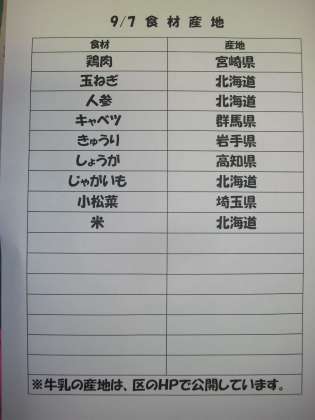 9/7 食材産地
食材 産地
鶏肉 宮崎県
玉ねぎ 北海道
人参 北海道
キャベツ 群馬県
きゅうり 岩手県
しょうが 高知県
じゃがいも 北海道
小松菜 埼玉県
米 北海道
※牛乳の産地は、区のHPで公開しています。